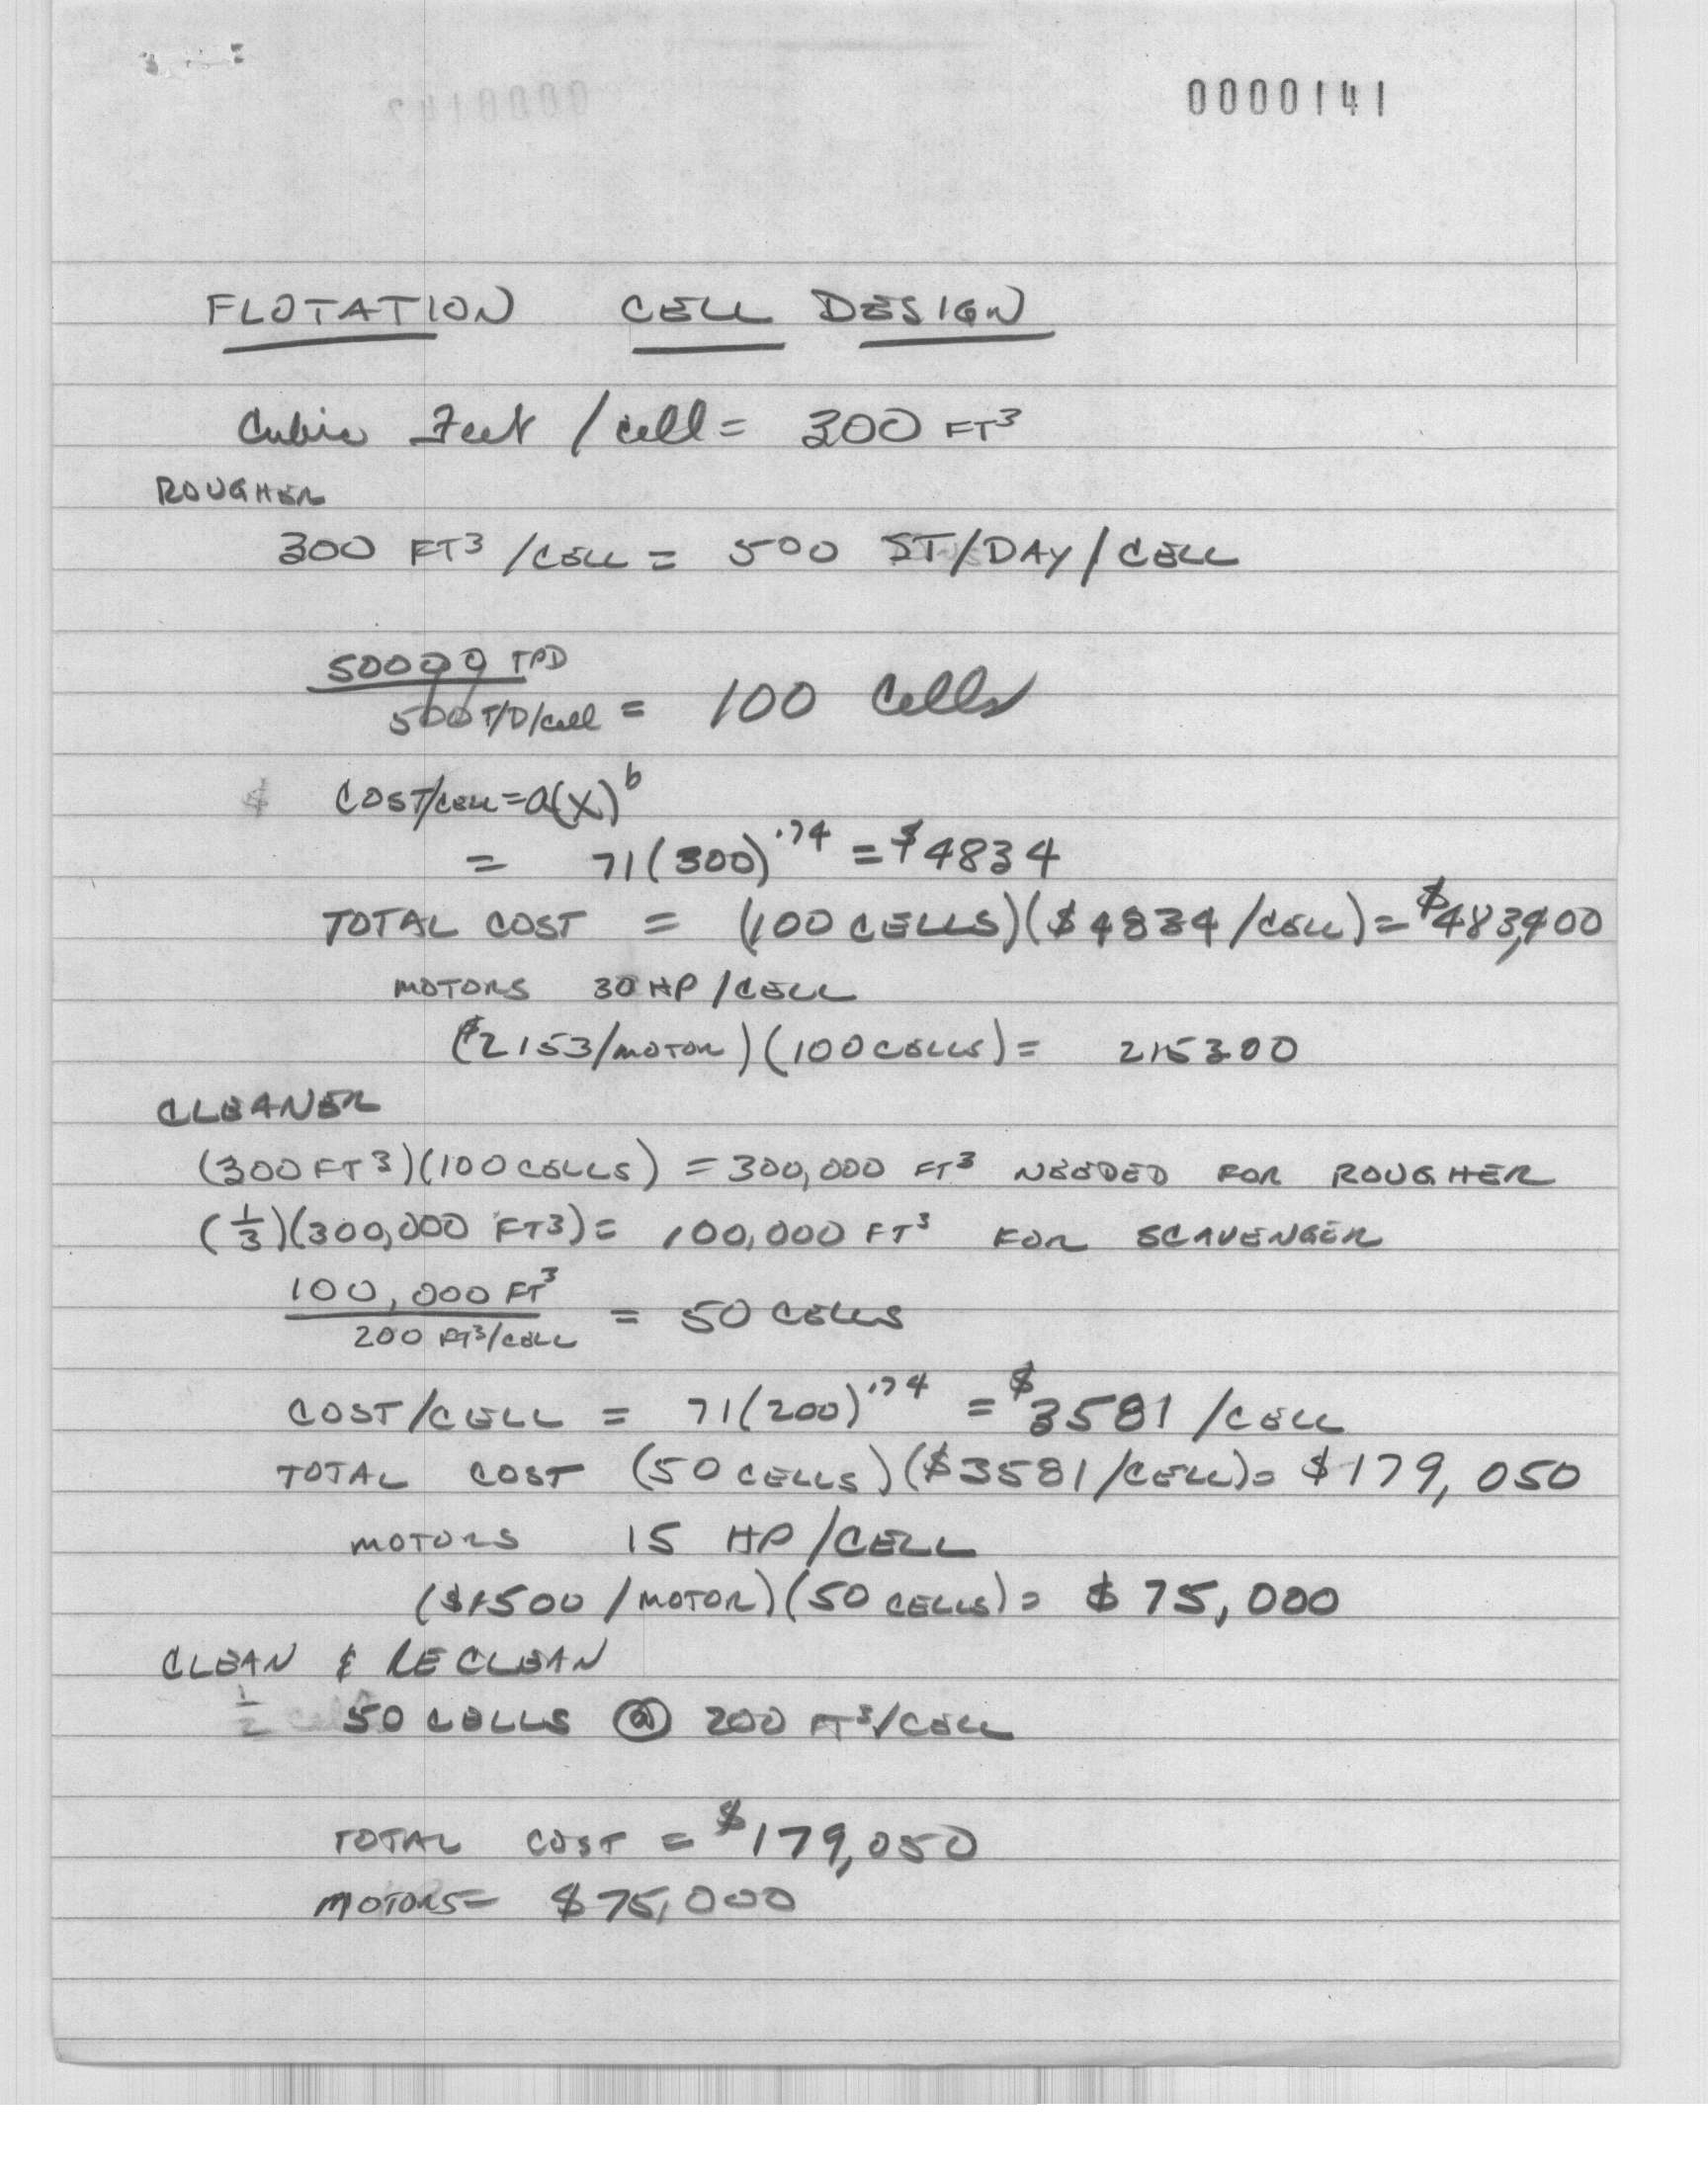 0000141
FLOTATION CELL DESIGN
Cubic Feet / cell = 300 FT³
ROUGHER
300 FT³ /CELL = 500 ST/DAY/CELL
50000 TPD
500 T/D/cell = 100 Cells
$ COST/CELL = a(X)^b
= 71(300)^.74 = $4834
TOTAL COST = (100 CELLS)($4834/CELL) = $483,400
MOTORS 30 HP/CELL
($2153/MOTOR)(100 CELLS) = 215300
CLEANER
(300 FT³)(100 CELLS) = 300,000 FT³ NEEDED FOR ROUGHER
(1/3)(300,000 FT³) = 100,000 FT³ FOR SCAVENGER
100,000 FT³
200 FT³/CELL = 50 CELLS
COST/CELL = 71(200)^.74 = $3581 /CELL
TOTAL COST (50 CELLS)($3581/CELL) = $179,050
MOTORS 15 HP/CELL
($1500/MOTOR)(50 CELLS) = $75,000
CLEAN & RECLEAN
1/2 50 CELLS @ 200 FT³/CELL
TOTAL COST = $179,050
MOTORS = $75,000